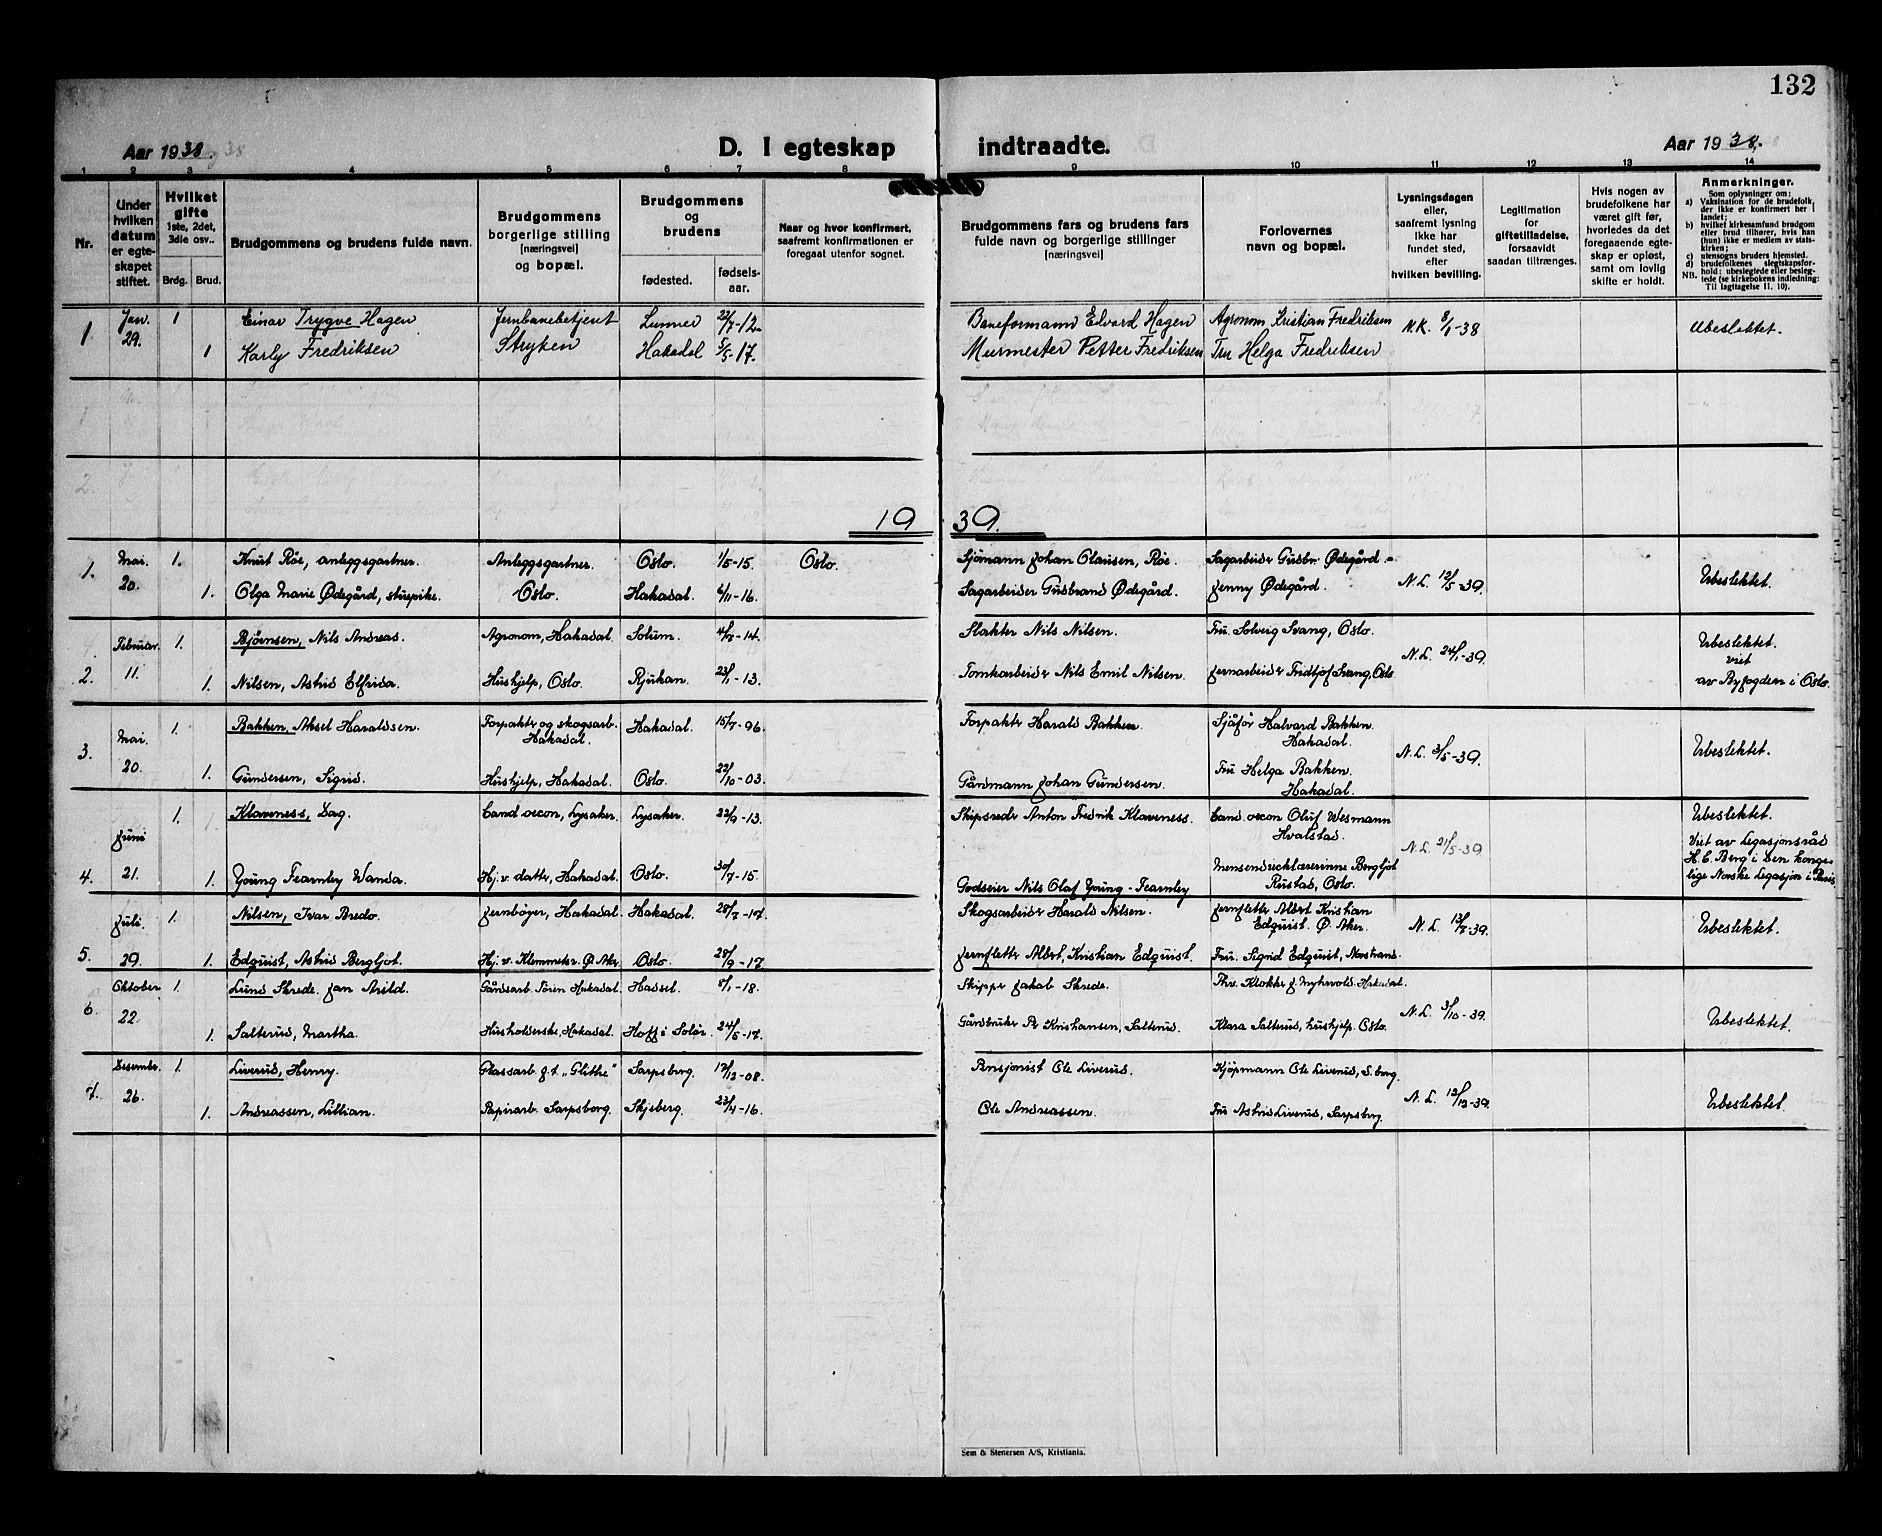 132
Aar 1938.
D. I egteskap indtraadte.
Aar 1938.
1 2 3 4 5 6 7 8 9 10 11 12 13 14
Nr.
Under hvilken datum er egteskapet stiftet.
Hvilket gifte 1ste, 2det, 3die osv..
Brdg. Brud.
Brudgommens og brudens fulde navn.
Brudgommens borgerlige stilling [næringsvei] og bopæl.
Brudgommens og brudens
fødested.
fødsels-aar.
Naar og hvor konfirmert, saafremt konfirmationen er foregaat utenfor sognet.
Brudgommens fars og brudens fars fulde navn og borgerlige stillinger [næringsvei]
Forlovernes navn og bopæl.
Lysningsdagen eller, saafremt lysning ikke har fundet sted, efter hvilken bevilling.
Legitimation for giftetilladelse, forsaavidt saadan tiltrænges.
Hvis nogen av brudefolkene har været gift før, hvorledes da det foregaaende egteskap er opløst, samt om lovlig skifte er holdt.
Anmerkninger.
Som oplysninger om:
a) Vaksination for de brudefolk, der ikke er konfirmert her i landet;
b) hvilket kirkesamfund brudgom eller brud tilhører, hvis han (hun) ikke er medlem av statskirken;
c) utensogns bruders hjemsted.
d) brudefolkenes slegtskapsforhold: ubeslegtede eller beslegtede (se kirkebokens indledning:
NB. Til Iagttagelse II. 10).
1 Jan. 29. 1 Einar Trygve Hagen Jernbanebetjent Lunner 22/7-12 Baneformann Edvard Hagen Agronom Kristian Fredriksen N.K. 8/1-38 Ubeslektet.
1 Karly Fredriksen Stryken Hakadal 5/5-17. Murmester Petter Fredriksen Fru Helga Fredriksen
1939.
1. Mai. 20. 1. Knut Röe, anleggsgartner. Anleggsgartner. Oslo. 1/5-15. Oslo. Sjömann Johan Olaisen, Röe. Sagarbeider Gudbr. Ødegård - N.L. 12/5-39. Ubeslektet.
1. Olga Marie Ødegård, stuepike. Oslo. Hakadal. 4/11-16. Sagarbeider Gudbrand Ødegård. Jenny Ødegård.
2. Februar. 11. 1. Bjørnsen, Nils Andreas. Agronom, Hakadal. Solum. -14. Slakter Nils Nilsen. Fru. Solveig Svang, Oslo. N.L. 24/1-39. Ubeslektet.
viet
1. Nilsen, Astrid Elfrida. Hushjelp, Oslo. Rjukan. 23/1-13. Tomtearbeider Nils Emil Nilsen. Jernarbeider Fridtjof Svang, Oslo av Byfogden i Oslo.
3. Mai. 20. 1. Bakken, Aksel Haraldsen. Forpakter og skogsarb. Hakadal. Hakadal. 15/7-96. Forpakter Harald Bakken Sjåfør Halvard Bakken Hakadal. N.L. 3/5-39. Ubeslektet.
1. Gundersen, Sigrid. Hushjelp, Hakadal. Oslo. 22/10-03. Gårdmann Johan Gundersen. Fru Helga Bakken. Hakadal.
4. Juni 21. 1. Klaveness, Dag. Cand oecon, Lysaker. Lysaker. 22/9-13. Skipsreder Anton Fredrik Klaveness. Cand. oecon Oluf Wesmann Hvalstad. N.L. 21/5-39. Ubeslektet.
Viet av Legasjonsråd H.C. Berg i den kongelige Norske Legasjon i Paris
1. Young Fearnley Wanda. Hj. v. datter, Hakadal. Oslo. 30/7-15. Godseier Nils Olaf Young-Fearnley Mensendiecklærerinne Bergljot Rustad, Oslo.
5. Juli. 29. 1. Nilsen, Ivar Bredo. Jernbøyer, Hakadal. Hakadal. 28/7-17. Skogsarbeider Harald Nilsen. Jernfletter Albert Kristian Edquist. Ø. Aker. N.L. 13/7-39. Ubeslektet.
1. Edquist, Astrid Bergljot. Hj. v. Klemmetsr. Ø. Aker Oslo. 28/9-17. Jernfletter Albert, Kristian Edquist. Fru. Sigrid Edquist, Nostrand.
6. Oktober 22. 1. Lund Skrede. Jan Arild. Gårdsarb. Tören Hakadal. Hadsel. 8/1-18. Skipper Jakob Skrede. Thv. Klokker J. Myhrvold. Hakadal. N.L. 3/10-39. Ubeslektet.
1. Salterud, Martha. Husholderske, Hakadal. Hoff i Solør. 24/5-17. Gårdbruker Kristiansen, Salterud. Klara Salterud, hushjelp. Oslo.
7. Desember. 26. 1. Liverud, Henry. Glassarb. g.t. „Glitre" Sarpsborg. 17/12-08. Pensjonist Ole Liverud. Kjøpmann Ole Liverud, S.borg. N.L. 12/12-39. Ubeslektet.
1. Andreassen, Lillian. Papirarb. Sarpsborg. Skjeberg. 23/4-16. Ole Andreassen. Fru Astrid Liverud, Sarpsborg.
Sem & Stenersen A/S, Kristiania.